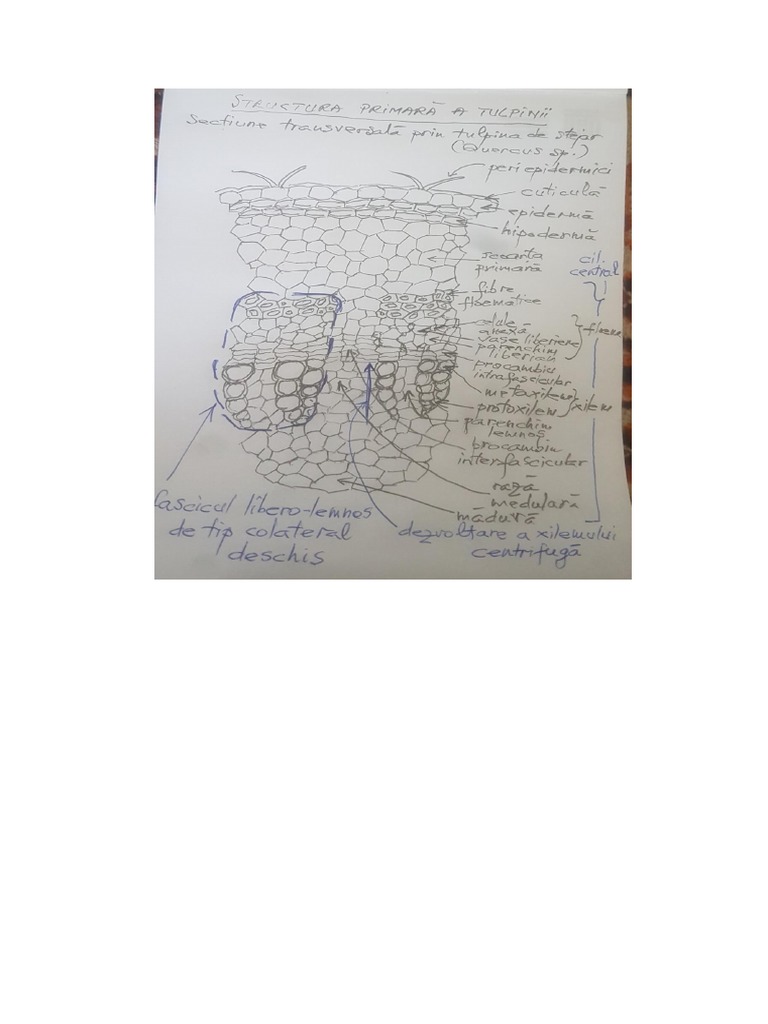 STRUCTURA PRIMARĂ A TULPINII
Secțiune transversală prin tulpina de stejar
(Quercus sp.)
peri epidermici
cuticulă
epidermă
hipodermă
scoarța
primară
cil.
central
fibre
floematice
celule
anexă
vase liberiene
parenchim
liberian
floem
procambiu
intrafascicular
metaxilem
protoxilem
xilem
parenchim
lemnos
procambiu
interfascicular
rază
medulară
măduvă
fascicul libero-lemnos
de tip colateral
deschis
dezvoltare a xilemului
centrifugă